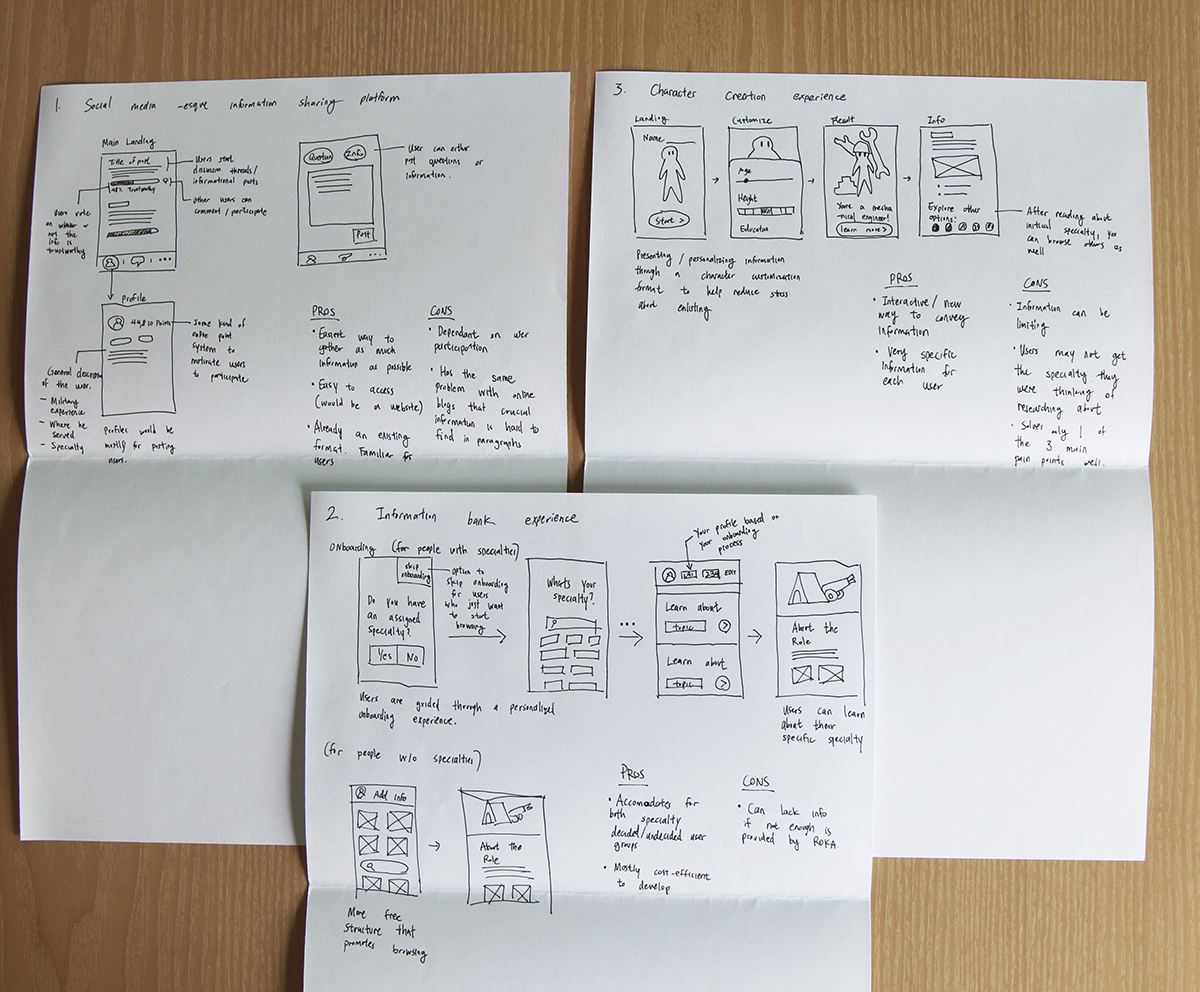 1. Social media -esque information sharing platform
Main Landing
Title of post
48% Trustworthy
Users start
discussion threads/
informational posts
Other users can
comment / participate
Users vote
on whether or
not the
info is
trustworthy
Question
Info
Post
User can either
post questions or
information.
Profile
Points
Some kind of
online point
system to
motivate users
to participate
General
of the user.
- Military
experience
- Where he
served
- Specialty
Profiles would be
mostly for posting
users.
PROS
• Easiest way to
gather as much
information as possible
• Easy to access
(would be a website)
• Already an existing
format. Familiar for
users
CONS
• Dependant on user
participation
• Has the same
problem with online
blogs that crucial
information is hard to
find in paragraphs
3. Character Creation experience
Landing
Name
Start >
Customize
Age
Height
Education
Result
You're a mecha
-nical engineer!
learn more >
Info
Explore other
options:
After reading about
initial specialty, you
can browse others as
well
Presenting / personalizing information
through a character customization
format to help reduce stress
about enlisting
PROS
• Interactive / new
way to convey
information
• Very specific
information for
each user
CONS
• Information can be
limiting
• Users may not get
the specialty they
were thinking of
researching about
• Solves only 1 of
the 3 main
pain points well.
2. Information bank experience
ONboarding (for people with specialties)
skip
onboarding
Do you have
an assigned
specialty?
Yes No
option to
skip onboarding
for users
who just want
to start
browsing
What's your
specialty?
...
Your profile based on
your onboarding
process
EDIT
Learn about
topic
Learn about
topic
About the
Role
Users are guided through a personalized
onboarding experience.
Users can learn
about their
specific specialty
(for people w/o specialties)
Add info
About the
Role
More free
structure that
promotes browsing
PROS
• Accomodates for
both specialty
decided/undecided user
groups
• Mostly cost-efficient
to develop
CONS
• Can lack info
if not enough is
provided by ROKA.